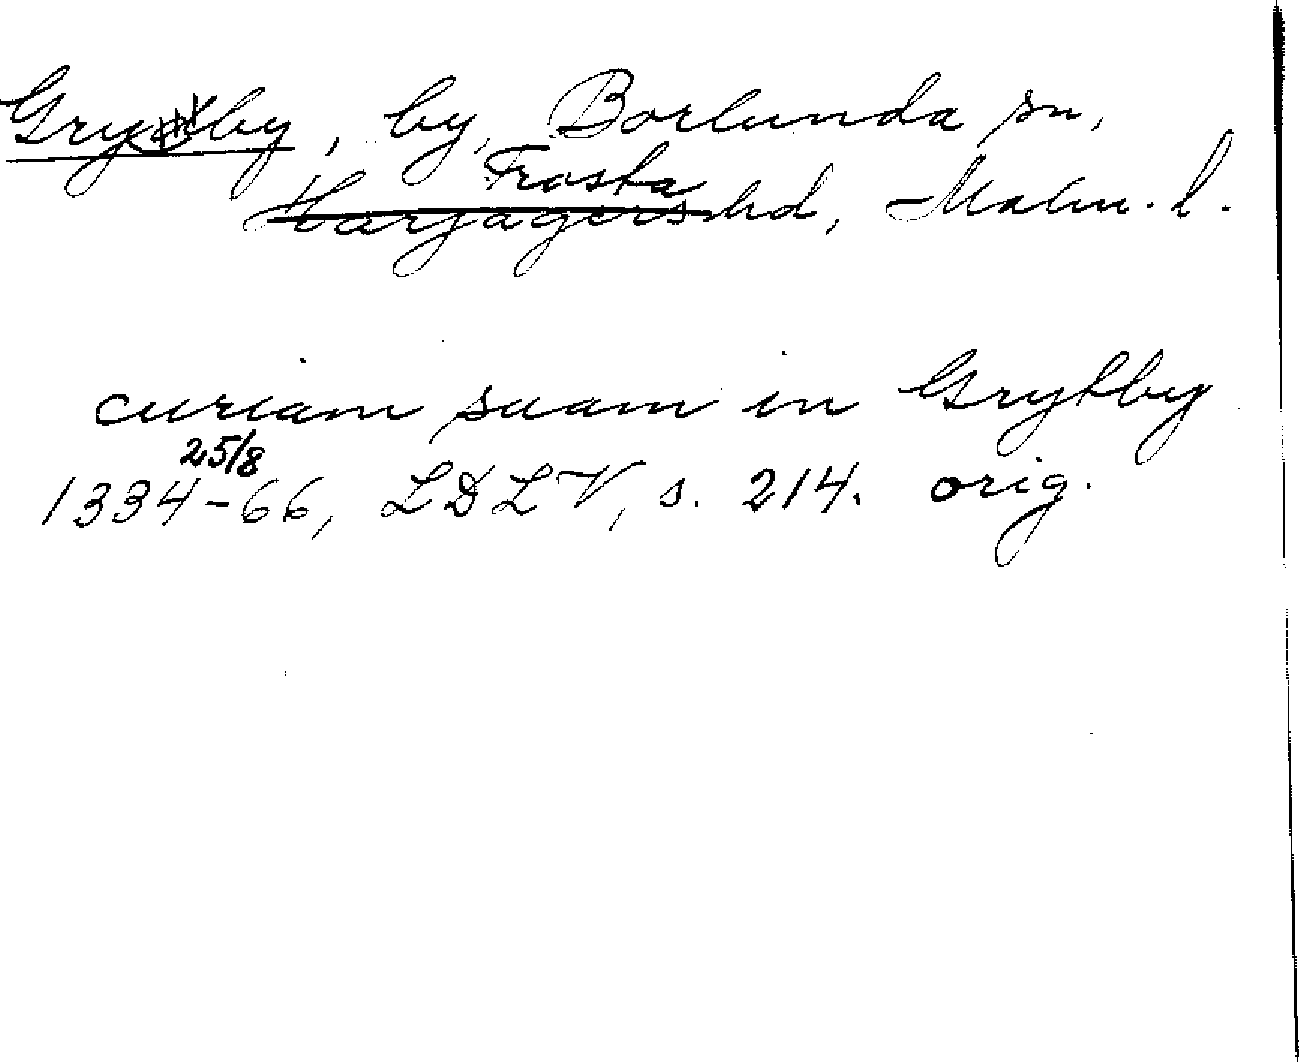 Gryby, by, Borlunda sn,
Frosta
Harjagers hd, Malm. l.
curiam suam in Grytby
25/8
1334-66, LDLV, s. 214. orig.